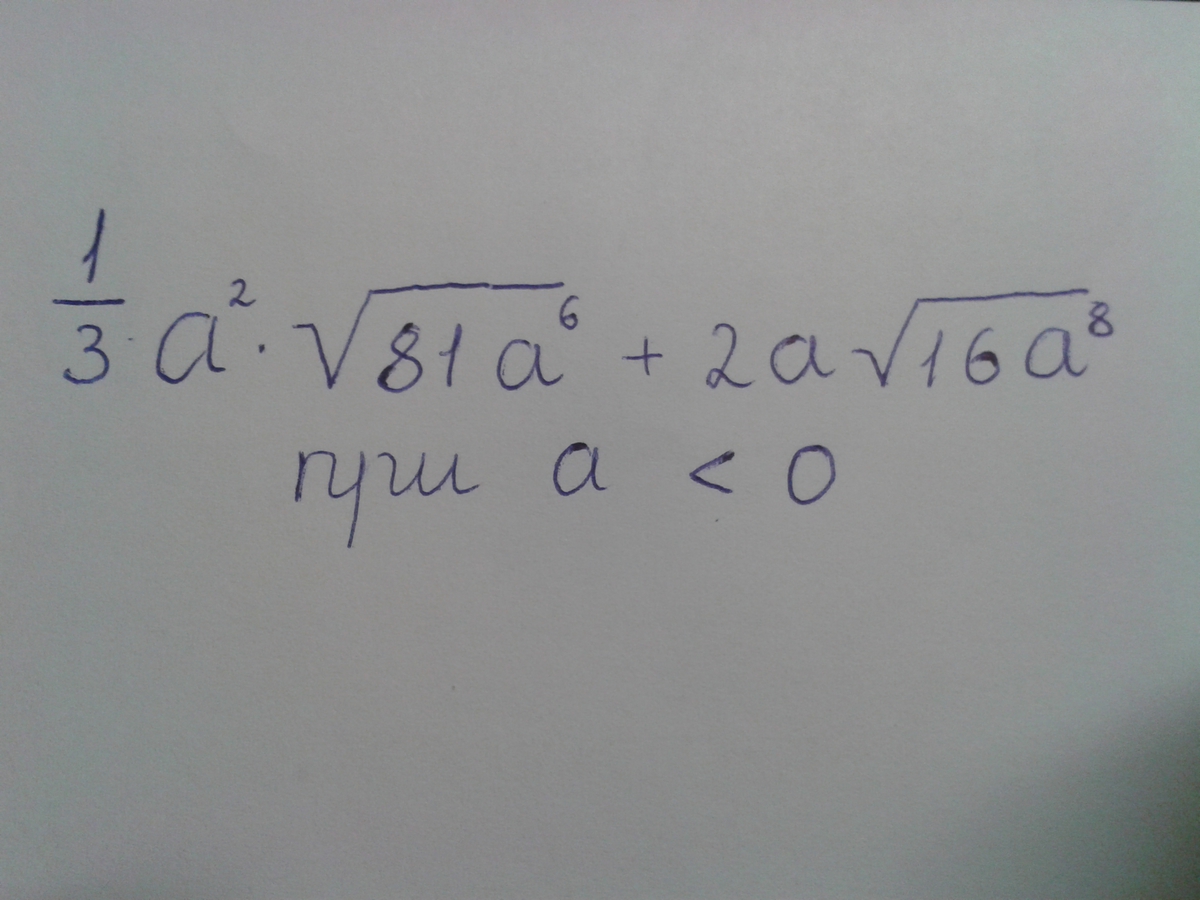 1/3 · a² · √81a⁶ + 2a√16a⁸
при a < 0